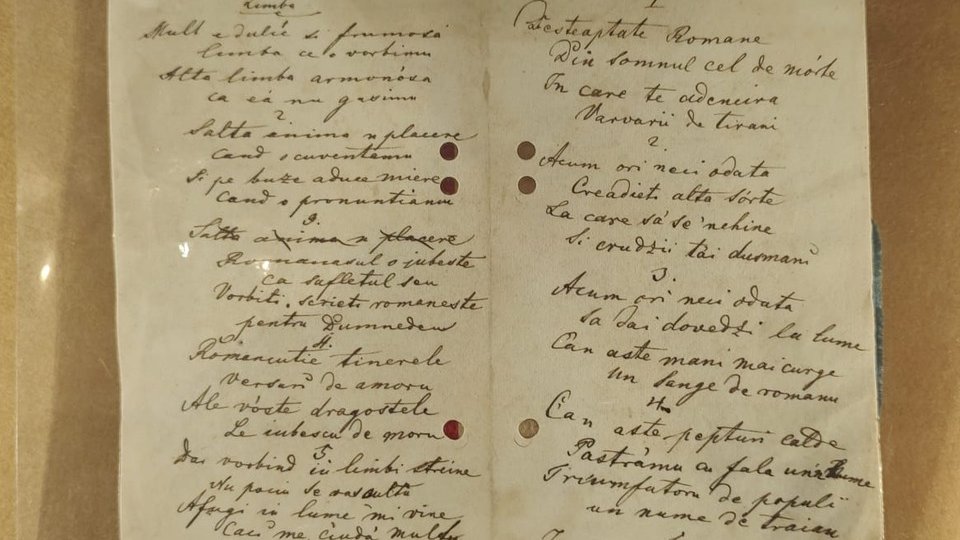 Limba
Mult e dulće si frumosa
limba ce o vorbimu
Alta limba armonósa
ca eá nu gasimu
2
Salta anima n placere
cand o cuventamu
Si pe buze aduce miere
Cand o pronuntiamu
3.
Salta anima n placere
Romanasul o jubeste
ca sufletul seu
Vorbiti, scrieti romaneste
pentru Dumnedeu
4.
Romancutie tinerele
Versuri de amoru
Ale vóste dragostele
Le iubescu de moru
5
Dar vorbind in limbi streine
Nu pociu se vasculta
Afugi in lume mi vine
Caci me ciudá multu
1
Desteaptate Romane
Din somnul cel de mórte
In care te adenćira
Varvarii de tirani
2.
Acum ori neci odata
Creadieti alta sórte
La care sá se 'nchine
Si crudzii tai dusmani
3.
Acum ori neci odata
Sa dai dovedzi la lume
Can aste mani mai curge
un sange de romanu
4.
Can aste pepturi calde
Pastrámu cu fala unui Nume
Triumfatoru de populi
un nume de traian